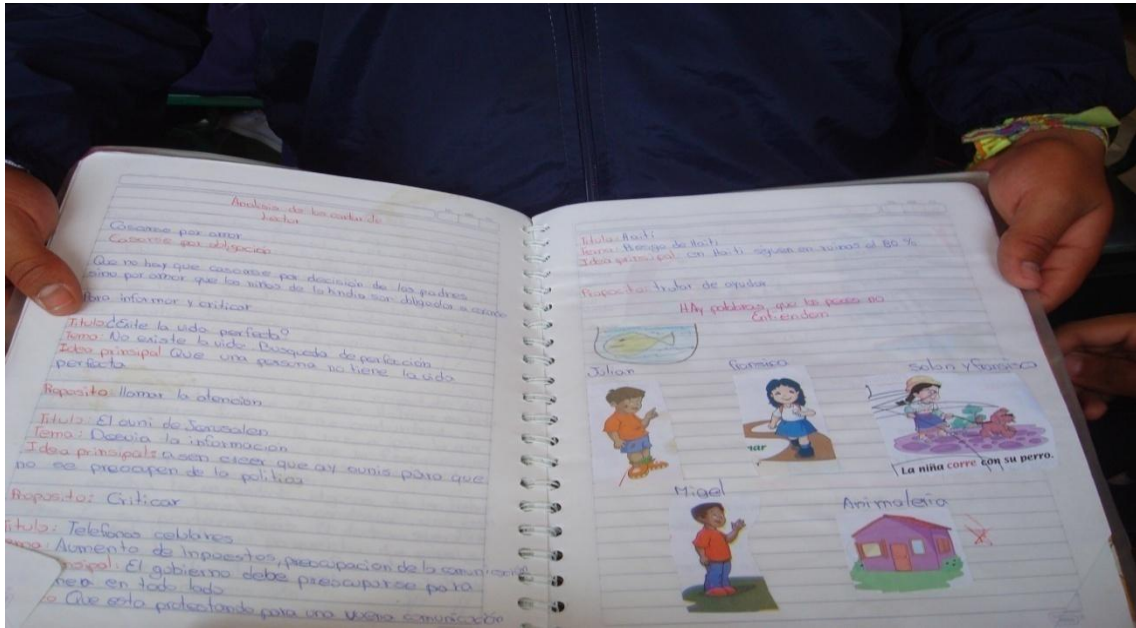 Analisis de los
Lectur
Casarse por amor
Casarse por obligacion
Que no hay que casarse por decisión de los padres
sino por amor que los niños de la India son obligados a
Para informar y criticar
Titulo: la vida perfecta?
Tema: No existe la vida Busqueda de perfeccion
Idea prinsipal Que una persona no tiene la vida
perfecta
Proposito: llamar la atencion
Titulo: El ovni de Jerusalen
Tema: Desvia la informacion
Idea prinsipal: asen creer que ay ovnis para que
no se preocupen de la politica
Proposito: Criticar
Titulo: Telefonos celulares
Aumento de Inpuestos, preocupacion de la comunicacion
El gobierno debe preocuparse para
en todo lado
Que esta protestando para una buena comunicación
Titulo: Haiti
Tema: Riesgo de Haiti
Idea prinsipal: en Haiti siguen en ruinas al 80 %
Proposito: tratar de ayudar
HAy palabras que los peces no
Entienden
Julian
Solan y
nar
La niña corre con su perro.
Migel
Animaleria